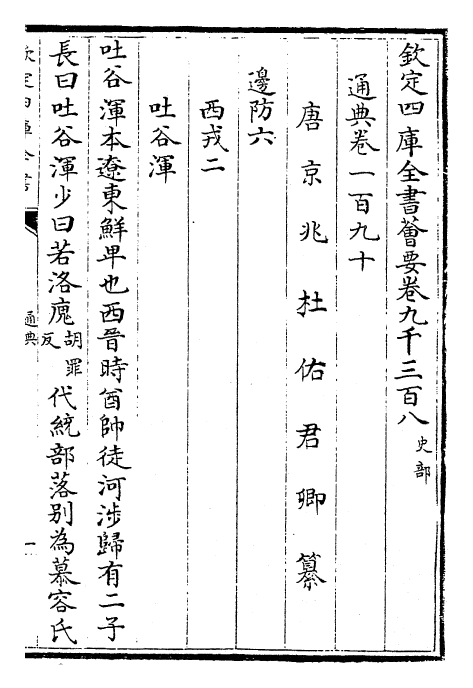 欽定四庫全書薈要卷九千三百八 史部
通典卷一百九十
唐京兆杜佑君卿纂
邊防六
西戎二
吐谷渾
吐谷渾本遼東鮮卑也西晉時酋帥徒河涉歸有二子
長曰吐谷渾少曰若洛廆胡罪反代統部落別為慕容氏
欽定四庫全書
通典
一